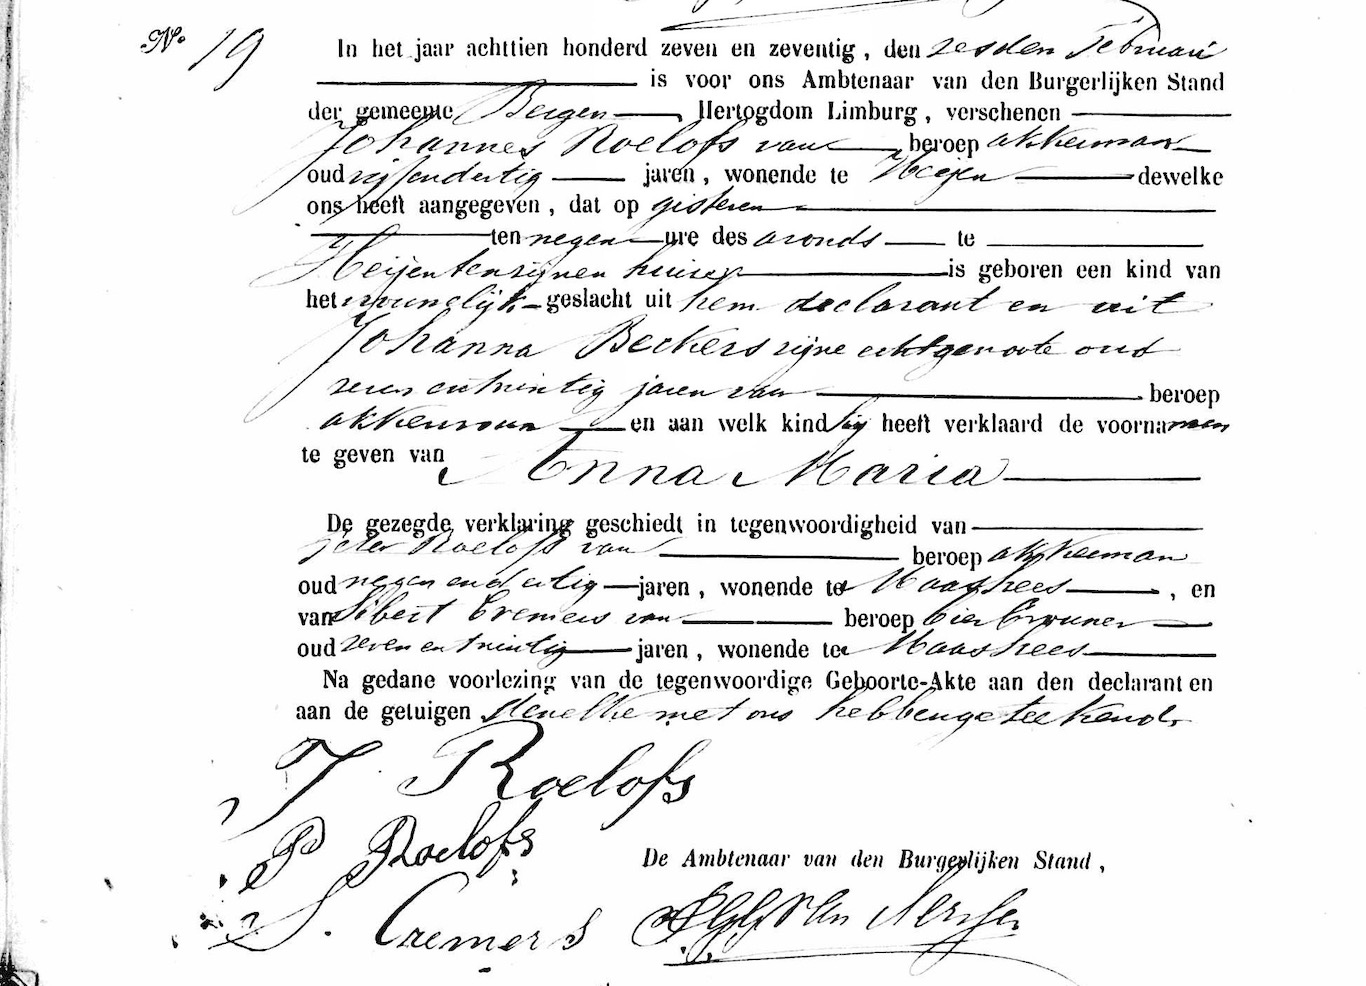 No 19 In het jaar achttien honderd zeven en zeventig, den zesden Februari
is voor ons Ambtenaar van den Burgerlijken Stand
der gemeente Bergen, Hertogdom Limburg, verschenen
Johannes Roelofs van beroep akkerman
oud vijfendertig jaren, wonende te Heijen dewelke
ons heeft aangegeven, dat op gisteren
ten negen ure des avonds te
Heijen ten zijnen huize is geboren een kind van
het vrouwelijk geslacht uit hem declarant en uit
Johanna Beckers zijne echtgenoote oud
zeven en twintig jaren van beroep
akkerman en aan welk kind hij heeft verklaard de voornamen
te geven van Anna Maria
De gezegde verklaring geschiedt in tegenwoordigheid van
Peter Roelofs van beroep akkerman
oud negen en dertig jaren, wonende te Maashees, en
van Sibert Cremers van beroep bierbrouwer
oud zeven en twintig jaren, wonende te Maashees
Na gedane voorlezing van de tegenwoordige Geboorte-Akte aan den declarant en
aan de getuigen dewelke met ons hebben geteekend
J Roelofs
P Roelofs
De Ambtenaar van den Burgerlijken Stand,
S. Cremers